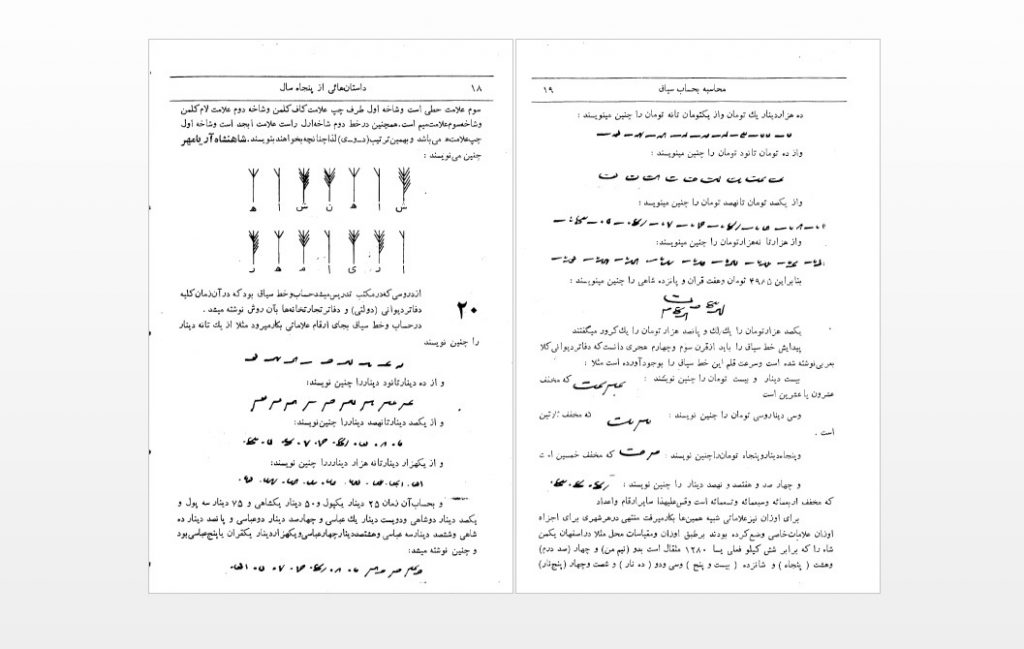 ۱۸ داستان‌هائی از پنجاه سال
سوم علامت حطی است وشاخه اول طرف چپ علامت کاف کلمن وشاخه دوم علامت لام کلمن
وشاخه سوم علامت میم است. همچنین درخط دوم شاخه اول راست علامت ابجد است وشاخه اول
چپ علامت ه می باشد و بهمین ترتیب (د_و_ی) لذا چنانچه بخواهند بنویسند، شاهنشاه آریامهر
چنین می نویسند :
ش ا ه ن ش ا ه
ا ر ی ا م ه ر
۲۰
از دروسی که در مکتب تدریس میشد حساب وخط سیاق بود که در آن زمان کلیه
دفاتر دیوانی (دولتی) و دفاتر تجارتخانه‌ها بآن روش نوشته میشد .
در حساب و خط سیاق بجای ارقام علاماتی بکار میرود مثلا از یک تا نه دینار
را چنین نویسند
و از ده دینار تا نود دینار را چنین نویسند:
و از یکصد دینار تا نهصد دینار را چنین نویسند:
و از یکهزار دینار تا نه هزار دینار را چنین نویسند:
و بحساب آن زمان ۲۵ دینار یکپول و ۵۰ دینار یکشاهی و ۷۵ دینار سه پول و
یکصد دینار دوشاهی ودویست دینار یك عباسی و چهارصد دینار دوعباسی و پانصد دینار ده
شاهی وششصد دینار سه عباسی وهشتصد دینار چهارعباسی ویکهزار دینار یکقران یا پنج عباسی بود
و چنین نوشته میشد:
محاسبه بحساب سیاق ۱۹
ده هزار دینار یك تومان واز یکتومان تا نه تومان را چنین مینویسند :
واز ده تومان تا نود تومان را چنین مینویسند :
واز یکصد تومان تا نهصد تومان را چنین مینویسد :
و از هزار تا نه هزار تومان را چنین مینویسند:
بنابراین ۴۹۶۵ تومان وهفت قران و پانزده شاهی را چنین مینویسند :
یکصد هزار تومان را یك لك و پانصد هزار تومان را یك کرور میگفتند
پیدایش خط سیاق را باید از قرن سوم وچهارم هجری دانست که دفاتر دیوانی کلا
بعربی نوشته شده است وسرعت قلم این خط سیاق را بوجود آورده است مثلا :
بیست دینار و بیست تومان را چنین نویسند : که مخفف
عشرون یا عشرین است
وسی دینار وسی تومان را چنین نویسند : که مخفف ثلاثین
است .
وپنجاه دینار و پنجاه تومان را چنین نویسند : که مخفف خمسین است
و چهار صد و هفتصد و نهصد دینار را چنین نویسند :
که مخفف اربعمائه وسبعمائه وتسعمائه است وقس علیهذا سایر ارقام واعداد
برای اوزان نیز علاماتی شبیه همین‌ها بکار میرفت منتهی در هر شهری برای اجزاء
اوزان علامات خاصی وضع کرده بودند برطبق اوزان ومقیاسات محل مثلا در اصفهان یکمن
شاه را که برابر شش کیلو فعلی یا ۱۲۸۰ مثقال است بدو (نیم من) و چهار (صد درم)
وهشت ( پنجاه ) و شانزده ( بیست و پنج ) وسی ودو ( ده نار ) و شصت وچهار (پنج نار)